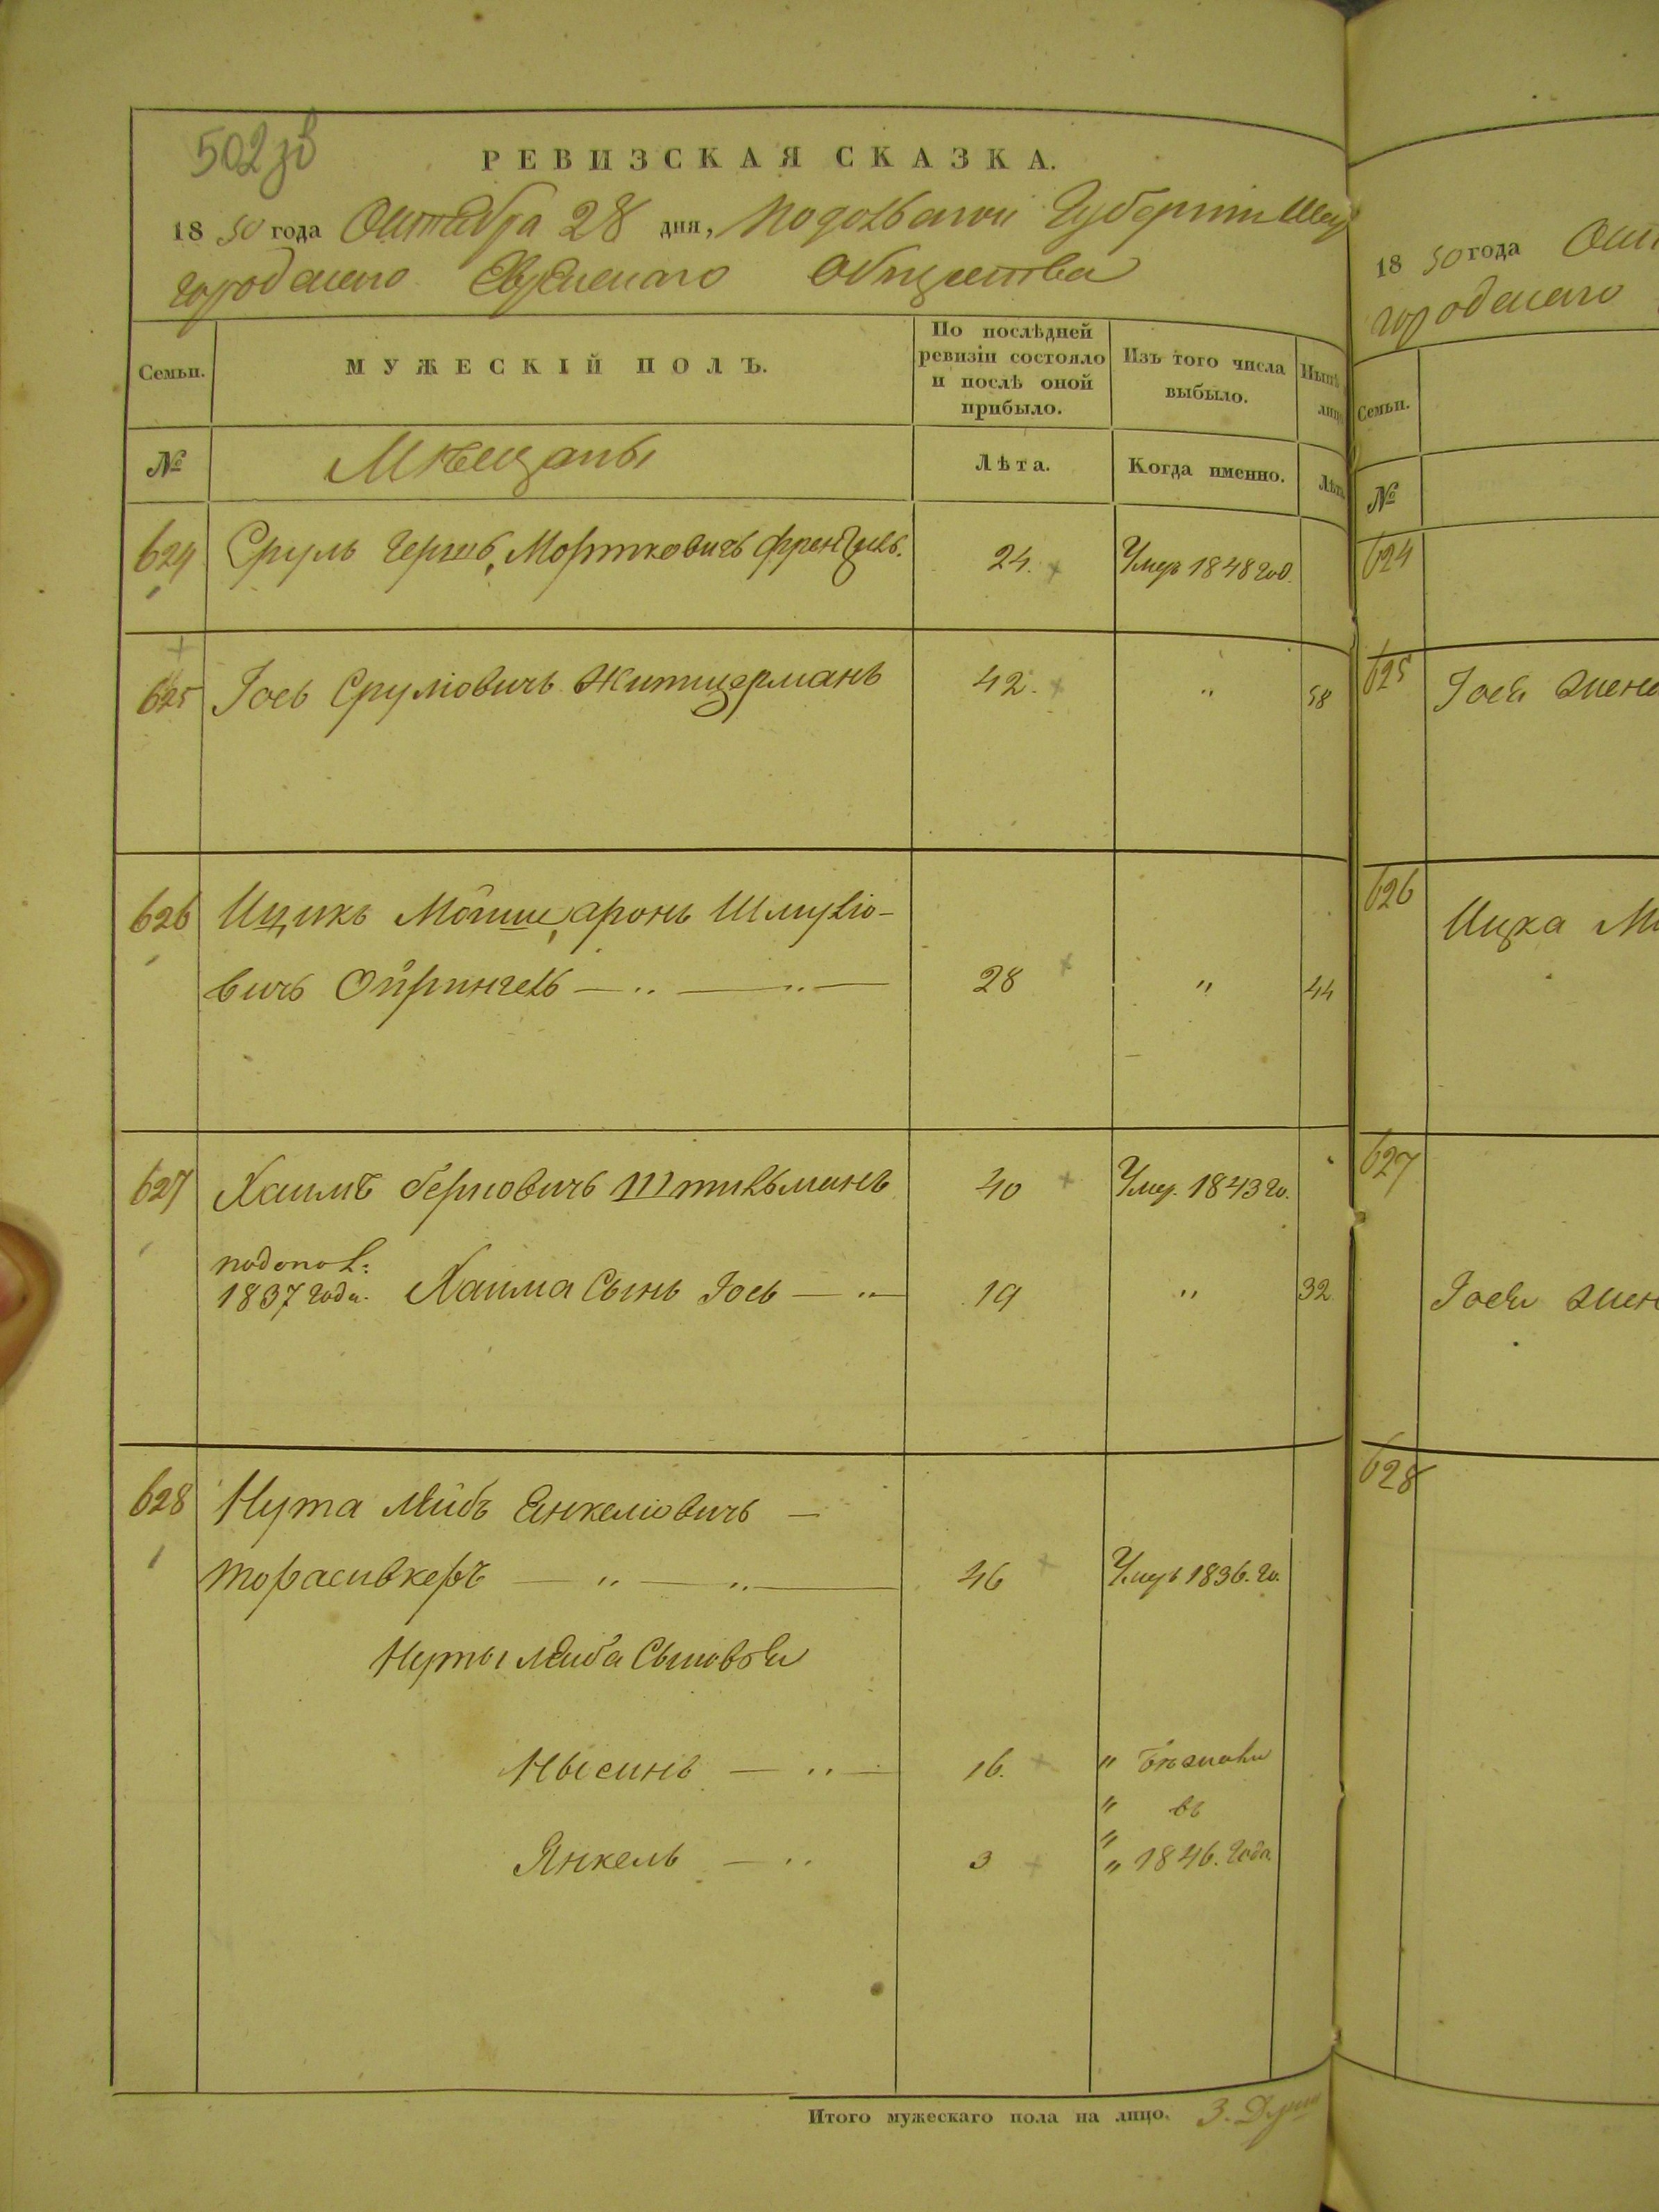 502 зв
РЕВИЗСКАЯ СКАЗКА.
1850 года Октября 28 дня, Подольской Губернии Шар
городскаго Еврейскаго Общества
Семьи.
МУЖЕСКІЙ ПОЛЪ.
По послѣдней ревизіи состояло и послѣ оной прибыло.
Изъ того числа выбыло.
Нынѣ
лицо
№
Мѣщаны
Лѣта.
Когда именно.
Лѣта
624 Сруль Гершъ, Мортковичъ 24. Умеръ 1848 год.
625 Іось Срулiовичъ Житицерманъ 42. " 58
626 Ицикъ Мошие, аронъ Шмулiо-
вичъ Ойрингель — .. — .. — 28 " 44
627 Хаимъ берковичъ Штильманъ 40 Умер. 1843 го.
1837 года. Хаима Сынъ Іось — .. — 19 " 32
628 Нута Лейбъ Янкелiовичъ —
торасивкеръ — .. — .. — 46 Умеръ 1836. го.
Нуты Лейба Сыновьи
Нысинъ — .. — 16. " Бѣжали
" въ
"
Янкель — .. 3 " 1846. года
Итого мужескаго пола на лицо. 3. Души
1850 года
городскаго
Семьи.
№
624
625 Іося жена
626 Ицка
627
Іося жен
628